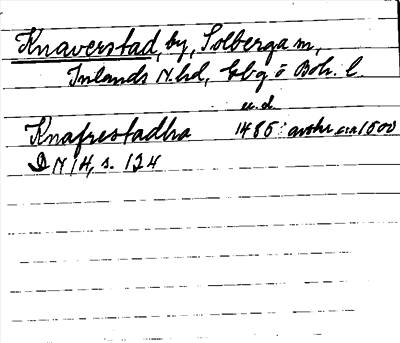 Knaverstad, by, Solberga sn,
Inlands N. hd, Gbg o Boh. l.
u.d.
Knafrestadha 1485: avskr. ca 1600
DN 14, s. 124